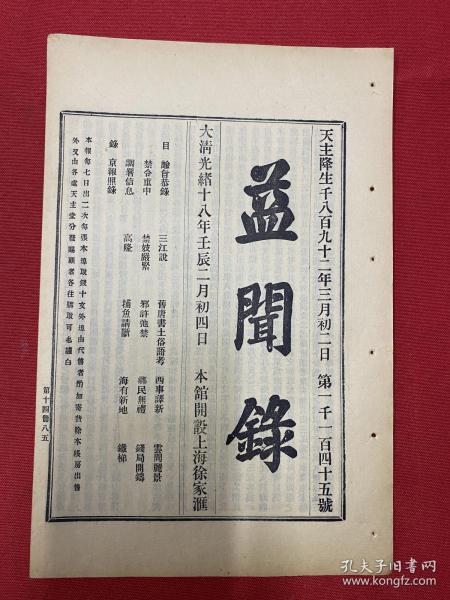 天主降生千八百九十二年三月初二日　第一千一百四十五號
益聞錄
大清光緒十八年壬辰二月初四日　本館開設上海徐家滙
目　諭旨恭錄　三江說　舊唐書土俗證考　西事譯新　雲間麗景
禁令重申　禁妓嚴緊　邪許弛禁　鄉民無禮　錢局開鑄
調署信息　高隆　捕魚請斷　海有新地　鐵梯
錄　京報照錄
本報每七日出二次每張本埠取錢十文外埠由代售者酌加寄費除本館房出售
外又由各處天主堂分發賜顧者各往購取可也謹白
第十四冊八五
孔夫子旧书网
www.kongfz.com